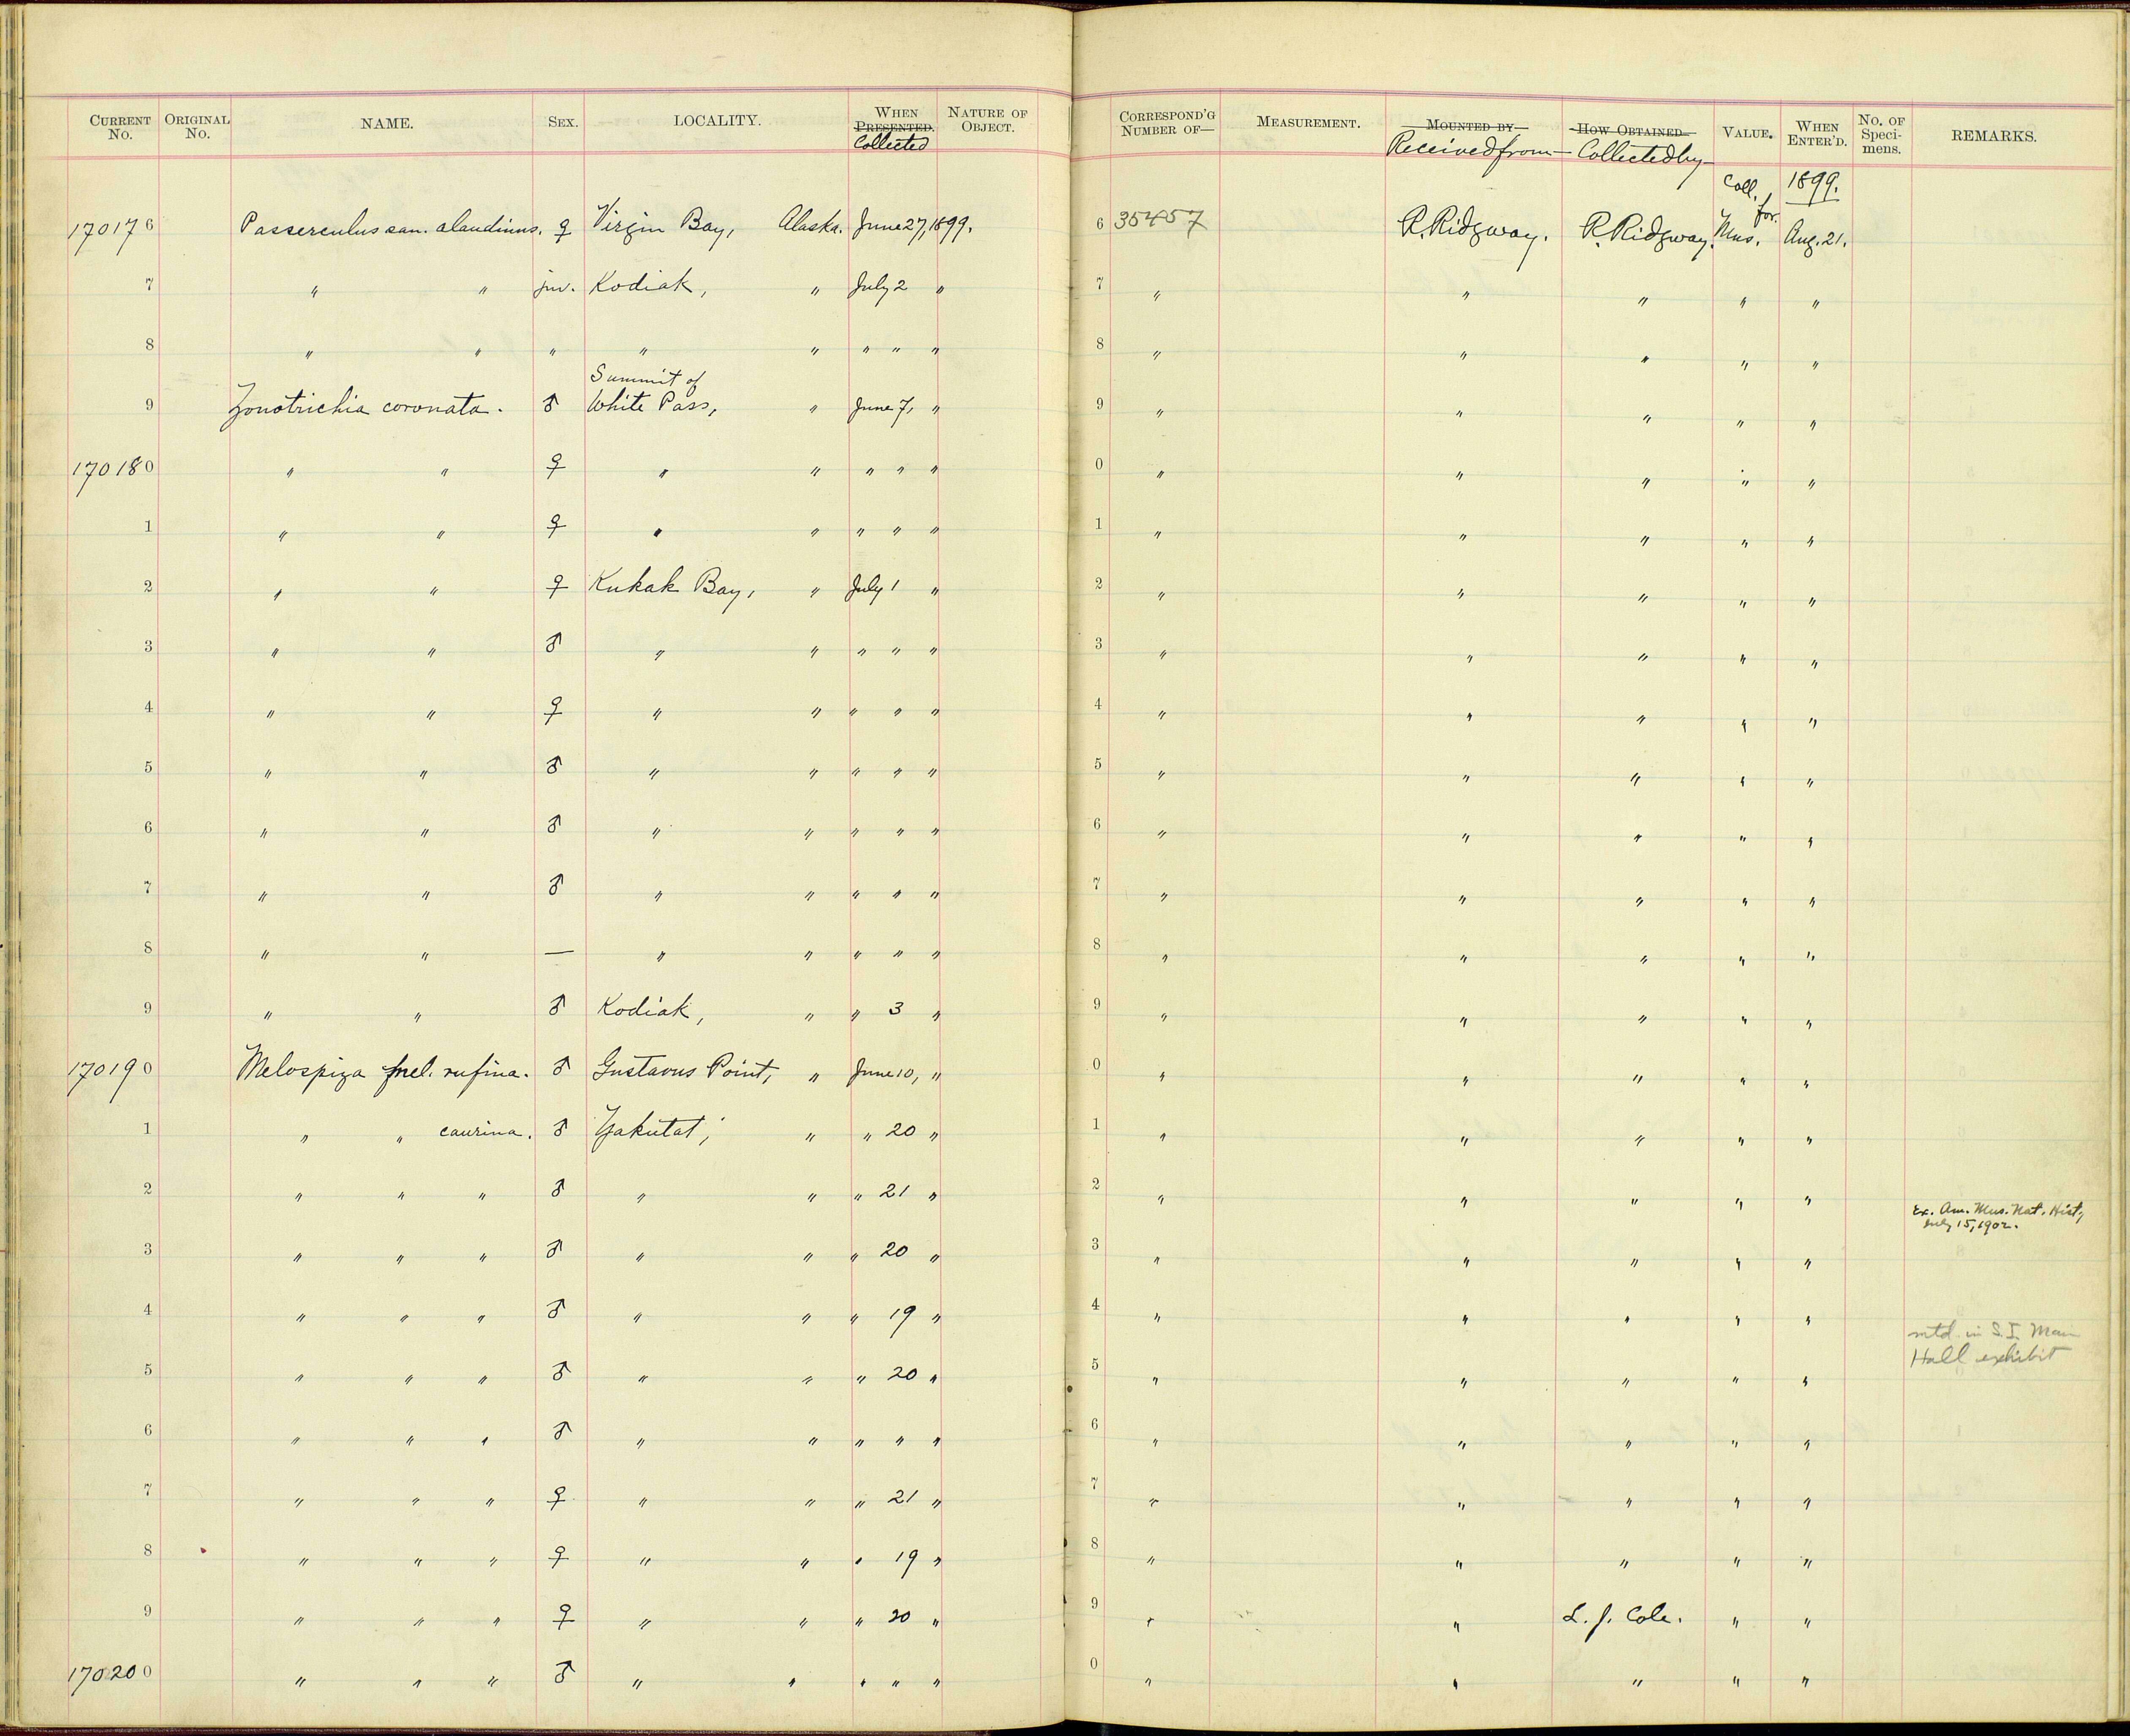 CURRENT No. ORIGINAL No. NAME. SEX. LOCALITY. WHEN PRESENTED. Collected NATURE OF OBJECT. CORRESPOND'G NUMBER OF— MEASUREMENT. MOUNTED BY— Received from— HOW OBTAINED— Collected by— VALUE. WHEN ENTER'D. No. OF Speci-mens. REMARKS.
Coll. for 1899.
170176 Passerculus san. alaudinus. ♀ Virgin Bay, Alaska. June 27, 1899. 6 35457 R. Ridgway. R. Ridgway. Mus. Aug. 21.
7 " " juv. Kodiak, " July 2 " 7 " " " " "
8 " " " " " " " " 8 " " " " "
Summit of
9 Zonotrichia coronata. ♂ White Pass, " June 7, " 9 " " " " "
170180 " " ♀ " " " " " 0 " " " " "
1 " " ♀ " " " " " 1 " " " " "
2 " " ♀ Kukak Bay, " July 1 " 2 " " " " "
3 " " ♂ " " " " " 3 " " " " "
4 " " ♀ " " " " " 4 " " " " "
5 " " ♂ " " " " " 5 " " " " "
6 " " ♂ " " " " " 6 " " " " "
7 " " ♂ " " " " " 7 " " " " "
8 " " — " " " " " 8 " " " " "
9 " " ♂ Kodiak, " " 3 " 9 " " " " "
170190 Melospiza mel. rufina. ♂ Gustavus Point, " June 10, " 0 " " " " "
1 " " caurina. ♂ Yakutat, " " 20 " 1 " " " " "
2 " " " ♂ " " " 21 " 2 " " " " "
Ex. Am. Mus. Nat. Hist.,
July 15, 1902.
3 " " " ♂ " " " 20 " 3 " " " " "
4 " " " ♂ " " " 19 " 4 " " " " "
mtd. in S.I. Main
Hall exhibit
5 " " " ♂ " " " 20 " 5 " " " " "
6 " " " ♂ " " " " " 6 " " " " "
7 " " " ♀ " " " 21 " 7 " " " " "
8 " " " ♀ " " " 19 " 8 " " " " "
9 " " " ♀ " " " 20 " 9 " " L. J. Cole. " "
170200 " " " ♂ " " " " " 0 " " " " "